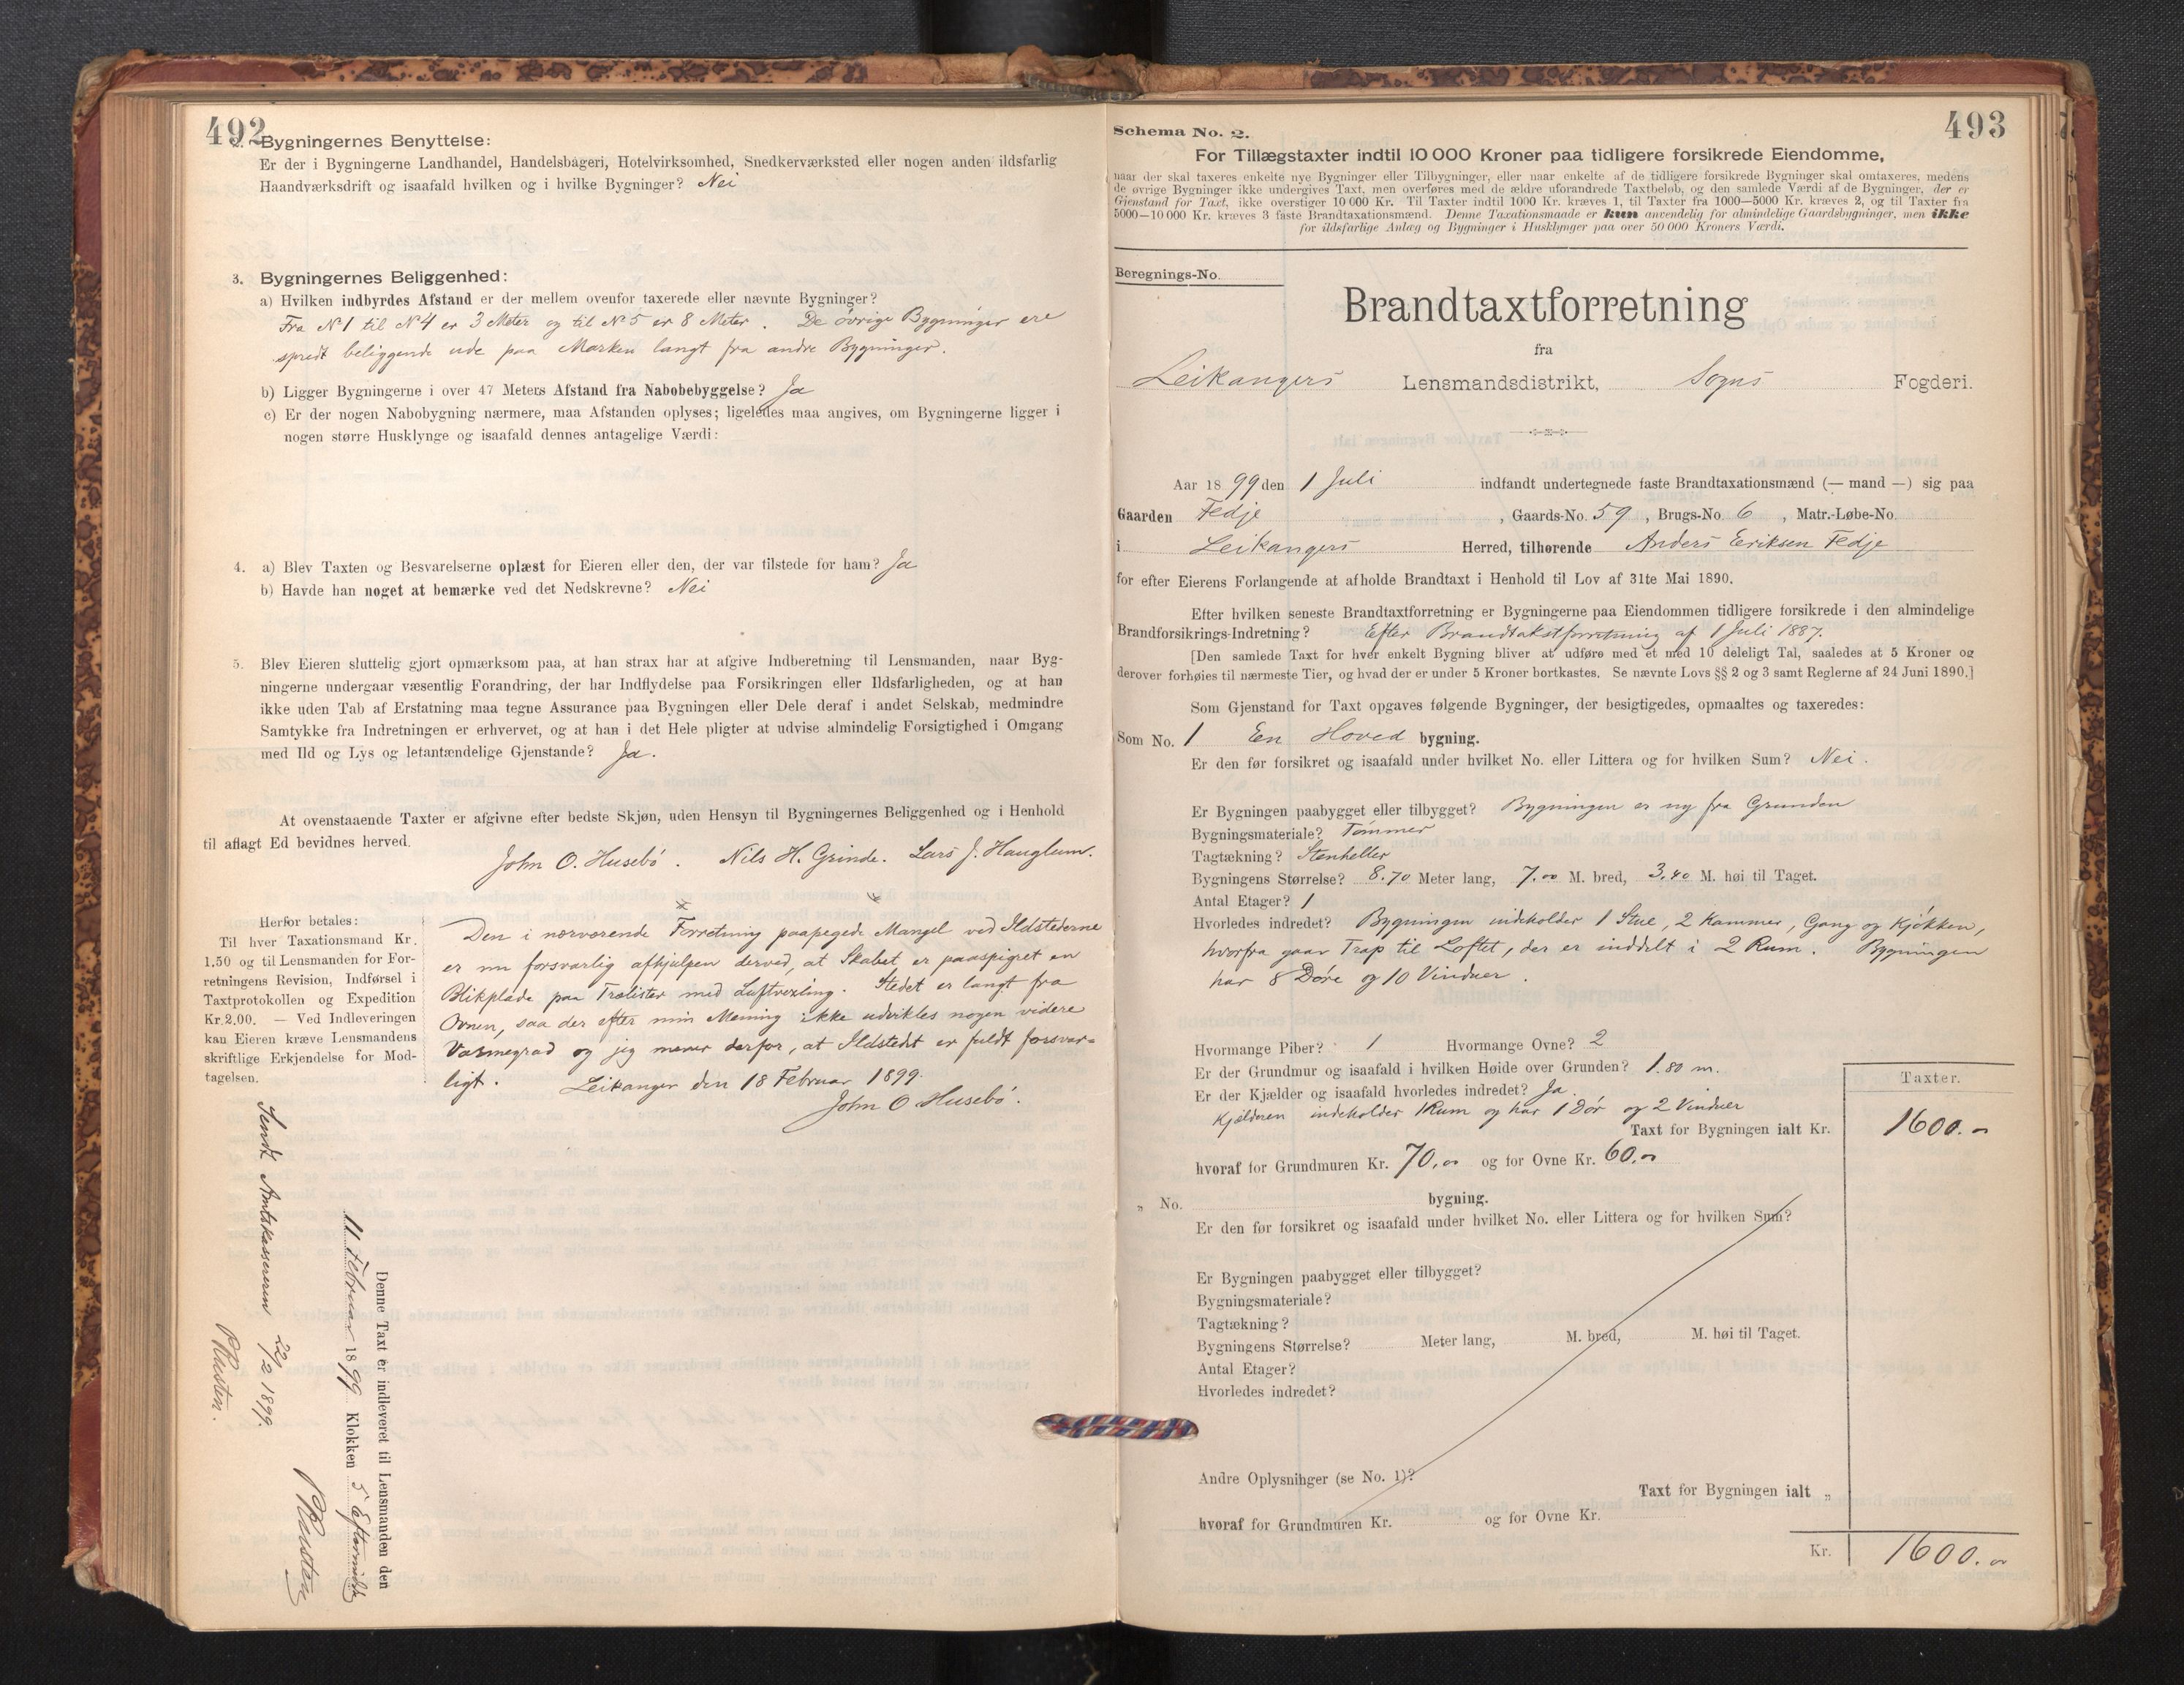 492
2. Bygningernes Benyttelse:
Er der i Bygningerne Landhandel, Handelsbageri, Hotelvirksomhed, Snedkerværksted eller nogen anden ildsfarlig
Haandværksdrift og isaafald hvilken og i hvilke Bygninger? Nei
3. Bygningernes Beliggenhed:
a) Hvilken indbyrdes Afstand er der mellem ovenfor taxerede eller nævnte Bygninger?
Fra No 1 til No 4 er 3 Meter og til No 5 er 8 Meter. De øvrige Bygninger ere
spredt beliggende ude paa Marken langt fra andre Bygninger.
b) Ligger Bygningerne i over 47 Meters Afstand fra Nabobebyggelse? Ja
c) Er der nogen Nabobygning nærmere, maa Afstanden oplyses; ligeledes maa angives, om Bygningerne ligger i
nogen større Husklynge og isaafald dennes antagelige Værdi:
4. a) Blev Taxten og Besvarelserne oplæst for Eieren eller den, der var tilstede for ham? Ja
b) Havde han noget at bemærke ved det Nedskrevne? Nei
5. Blev Eieren sluttelig gjort opmærksom paa, at han strax har at afgive Indberetning til Lensmanden, naar Byg-
ningerne undergaar væsentlig Forandring, der har Indflydelse paa Forsikringen eller Ildsfarligheden, og at han
ikke uden Tab af Erstatning maa tegne Assurance paa Bygningen eller Dele deraf i andet Selskab, medmindre
Samtykke fra Indretningen er erhvervet, og at han i det Hele pligter at udvise almindelig Forsigtighed i Omgang
med Ild og Lys og letantændelige Gjenstande? Ja.
At ovenstaaende Taxter er afgivne efter bedste Skjøn, uden Hensyn til Bygningernes Beliggenhed og i Henhold
til aflagt Ed bevidnes herved.
John O. Husebö. Nils H. Grinde. Lars J. Hauglum.
Herfor betales:
Til hver Taxationsmand Kr.
1.50 og til Lensmanden for For-
retningens Revision, Indførsel i
Taxtprotokollen og Expedition
Kr. 2.00. — Ved Indleveringen
kan Eieren kræve Lensmandens
skriftlige Erkjendelse for Mod-
tagelsen.
Den i nærværende Forretning paapegede Mangel ved Ildstederne
er nu forsvarlig afhjulpen derved, at Skabet er paaspigret en
Blikplade paa Trælister med Luftvexling. Stedet er langt fra
Ovnen, saa der efter min Mening ikke udvikles nogen videre
Varmegrad og jeg mener derfor, at Ildstedet er fuldt forsvar-
ligt. Leikanger den 18 Februar 1899.
John O Husebö.
Denne Taxt er indleveret til Lensmanden den
11 Februar 1899 Klokken 5 Eftermidd.
Sendt Amtskassereren 22/2 1899.
493
Schema No. 2.
For Tillægstaxter indtil 10 000 Kroner paa tidligere forsikrede Eiendomme,
naar der skal taxeres enkelte nye Bygninger eller Tilbygninger, eller naar enkelte af de tidligere forsikrede Bygninger skal omtaxeres, medens
de øvrige Bygninger ikke undergives Taxt, men overføres med de ældre uforandrede Taxtbeløb, og den samlede Værdi af de Bygninger, der er
Gjenstand for Taxt, ikke overstiger 10 000 Kr. Til Taxter indtil 1000 Kr. kræves 1, til Taxter fra 1000—5000 Kr. kræves 2, og til Taxter fra
5000—10 000 Kr. kræves 3 faste Brandtaxationsmænd. Denne Taxationsmaade er kun anvendelig for almindelige Gaardsbygninger, men ikke
for ildsfarlige Anlæg og Bygninger i Husklynger paa over 50 000 Kroners Værdi.
Beregnings-No.
Brandtaxtforretning
fra
Leikangers Lensmandsdistrikt, Sogns Fogderi.
Aar 1899 den 1 Juli indfandt undertegnede faste Brandtaxationsmænd (— mand —) sig paa
Gaarden Fedje, Gaards-No. 59, Brugs-No. 6, Matr.-Løbe-No.
i Leikangers Herred, tilhørende Anders Eriksen Fedje
for efter Eierens Forlangende at afholde Brandtaxt i Henhold til Lov af 31te Mai 1890.
Efter hvilken seneste Brandtaxtforretning er Bygningerne paa Eiendommen tidligere forsikrede i den almindelige
Brandforsikrings-Indretning? Efter Brandtakstforretning af 1 Juli 1887.
[Den samlede Taxt for hver enkelt Bygning bliver at udføre med et med 10 deleligt Tal, saaledes at 5 Kroner og
derover forhøies til nærmeste Tier, og hvad der er under 5 Kroner bortkastes. Se nævnte Lovs §§ 2 og 3 samt Reglerne af 24 Juni 1890.]
Som Gjenstand for Taxt opgaves følgende Bygninger, der besigtigedes, opmaaltes og taxeredes:
Som No. 1 En Hoved bygning.
Er den før forsikret og isaafald under hvilket No. eller Littera og for hvilken Sum? Nei.
Er Bygningen paabygget eller tilbygget? Bygningen er ny fra Grunden
Bygningsmateriale? Tømmer
Tagtækning? Stenheller
Bygningens Størrelse? 8.70 Meter lang, 7.00 M. bred, 3,40 M. høi til Taget.
Antal Etager? 1
Hvorledes indredet? Bygningen indeholder 1 Stue, 2 Kammer, Gang og Kjøkken,
hvorfra gaar Trap til Loftet, der er inddelt i 2 Rum. Bygningen
har 8 Døre og 10 Vinduer.
Hvormange Piber? 1 Hvormange Ovne? 2
Er der Grundmur og isaafald i hvilken Høide over Grunden? 1.80 m.
Er der Kjælder og isaafald hvorledes indredet? Ja.
Kjælderen indeholder 1 Rum og har 1 Dør og 2 Vinduer
Taxter.
Taxt for Bygningen ialt Kr. 1600.-
hvoraf for Grundmuren Kr. 70,00 og for Ovne Kr. 60,00
„ No. bygning.
Er den før forsikret og isaafald under hvilket No. eller Littera og for hvilken Sum?
Er Bygningen paabygget eller tilbygget?
Bygningsmateriale?
Tagtækning?
Bygningens Størrelse? Meter lang, M. bred, M. høi til Taget.
Antal Etager?
Hvorledes indredet?
Andre Oplysninger (se No. 1)?
Taxt for Bygningen ialt „
hvoraf for Grundmuren Kr. og for Ovne Kr.
Kr. 1600.00